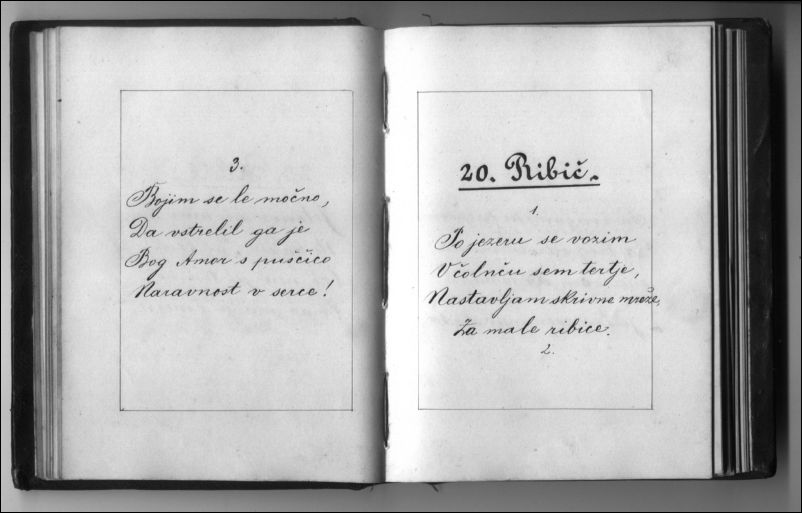 3.
Bojim se le močno,
Da vstrelil ga je
Bog Amor s puščico
Naravnost v serce!
20. Ribič.
1.
Po jezeru se vozim
V čolnču sem tertje,
Nastavljam skrivne mreže,
Za male ribice.
2.